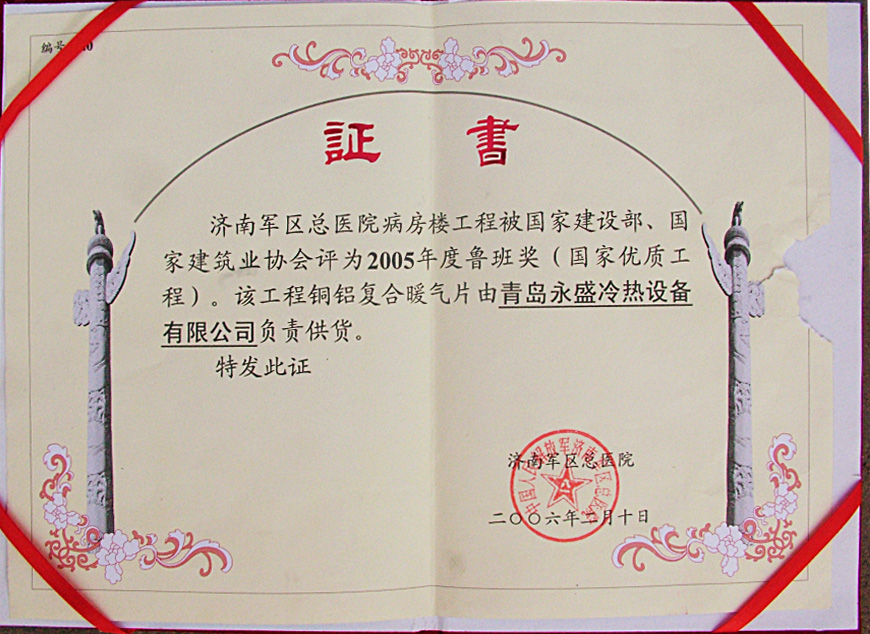 编号
证 書
济南军区总医院病房楼工程被国家建设部、国
家建筑业协会评为2005年度鲁班奖（国家优质工
程）。该工程铜铝复合暖气片由青岛永盛冷热设备
有限公司负责供货。
特发此证
济南军区总医院
二〇〇六年二月十日